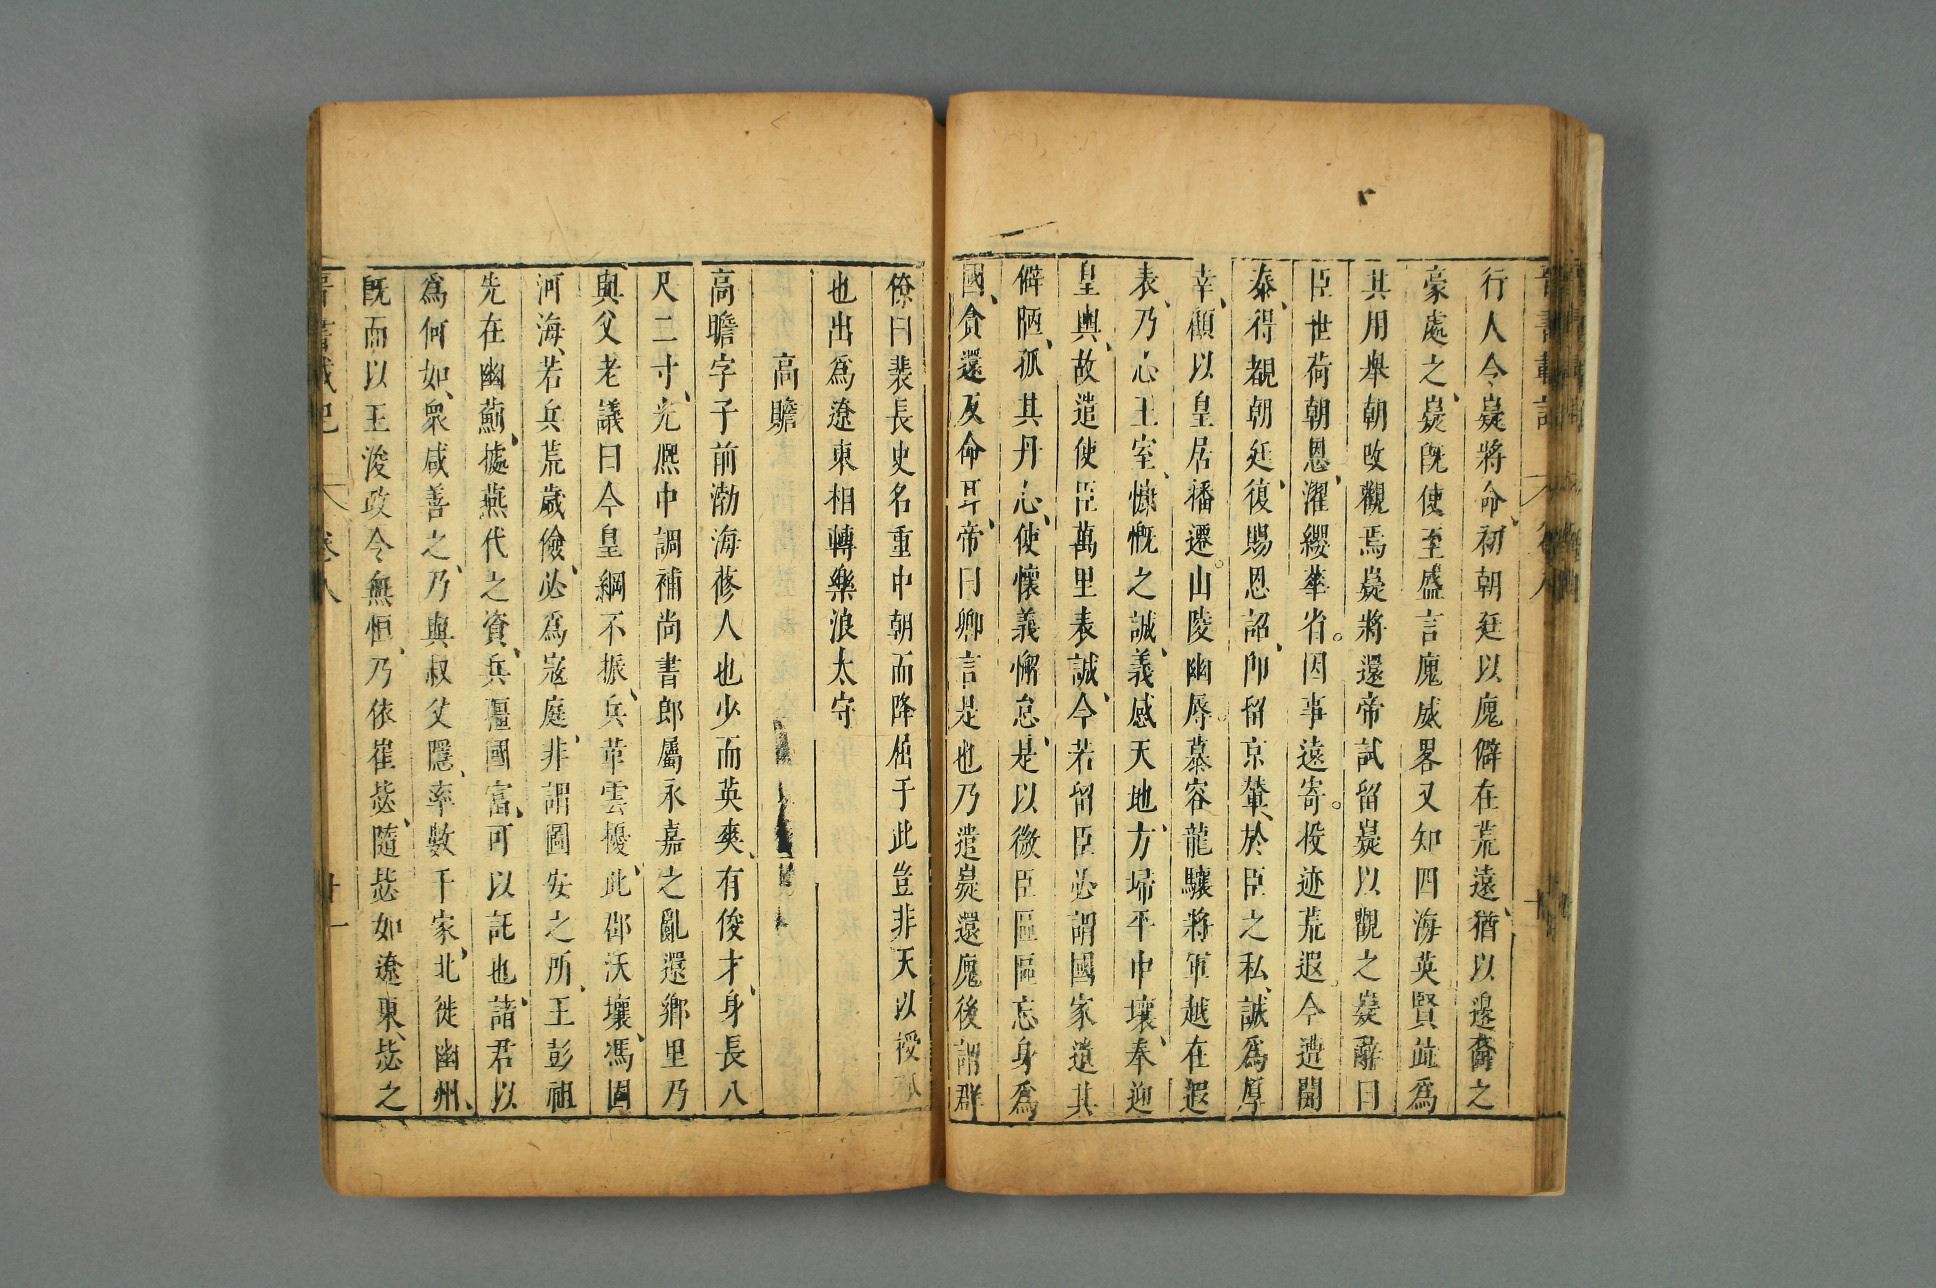 晉書載記 卷八
行人令嶷將命初朝廷以廆僻在荒遠猶以邊裔之
豪處之嶷旣使至盛言廆威畧又知四海英賢竝爲
其用舉朝改觀焉嶷將還帝試留嶷以觀之嶷辭曰
臣世荷朝恩濯纓華省因事遠寄投迹荒遐今遭開
泰得覩朝廷復賜恩詔卽留京輦於臣之私誠爲厚
幸顧以皇居播遷山陵幽辱慕容龍驤將軍越在遐
表乃心王室慷慨之誠義感天地方埽平中壤奉迎
皇輿故遣使臣萬里表誠今若留臣必謂國家遺其
僻陋孤其丹心使懷義懈怠是以微臣區區忘身爲
國貪還反命耳帝曰卿言是也乃遣嶷還廆後謂群
僚曰裴長史名重中朝而降屈于此豈非天以授孤
也出爲遼東相轉樂浪太守
高瞻
高瞻字子前渤海蓚人也少而英爽有俊才身長八
尺二寸光熙中調補尚書郎屬永嘉之亂還鄉里乃
與父老議曰今皇綱不振兵革雲擾此郡沃壤馮固
河海若兵荒歲儉必爲寇庭非謂圖安之所王彭祖
先在幽薊據燕代之資兵彊國富可以託也諸君以
爲何如衆咸善之乃與叔父隱率數千家北徙幽州
旣而以王浚政令無恒乃依崔毖隨毖如遼東毖之
晉書載記 卷八 廿一